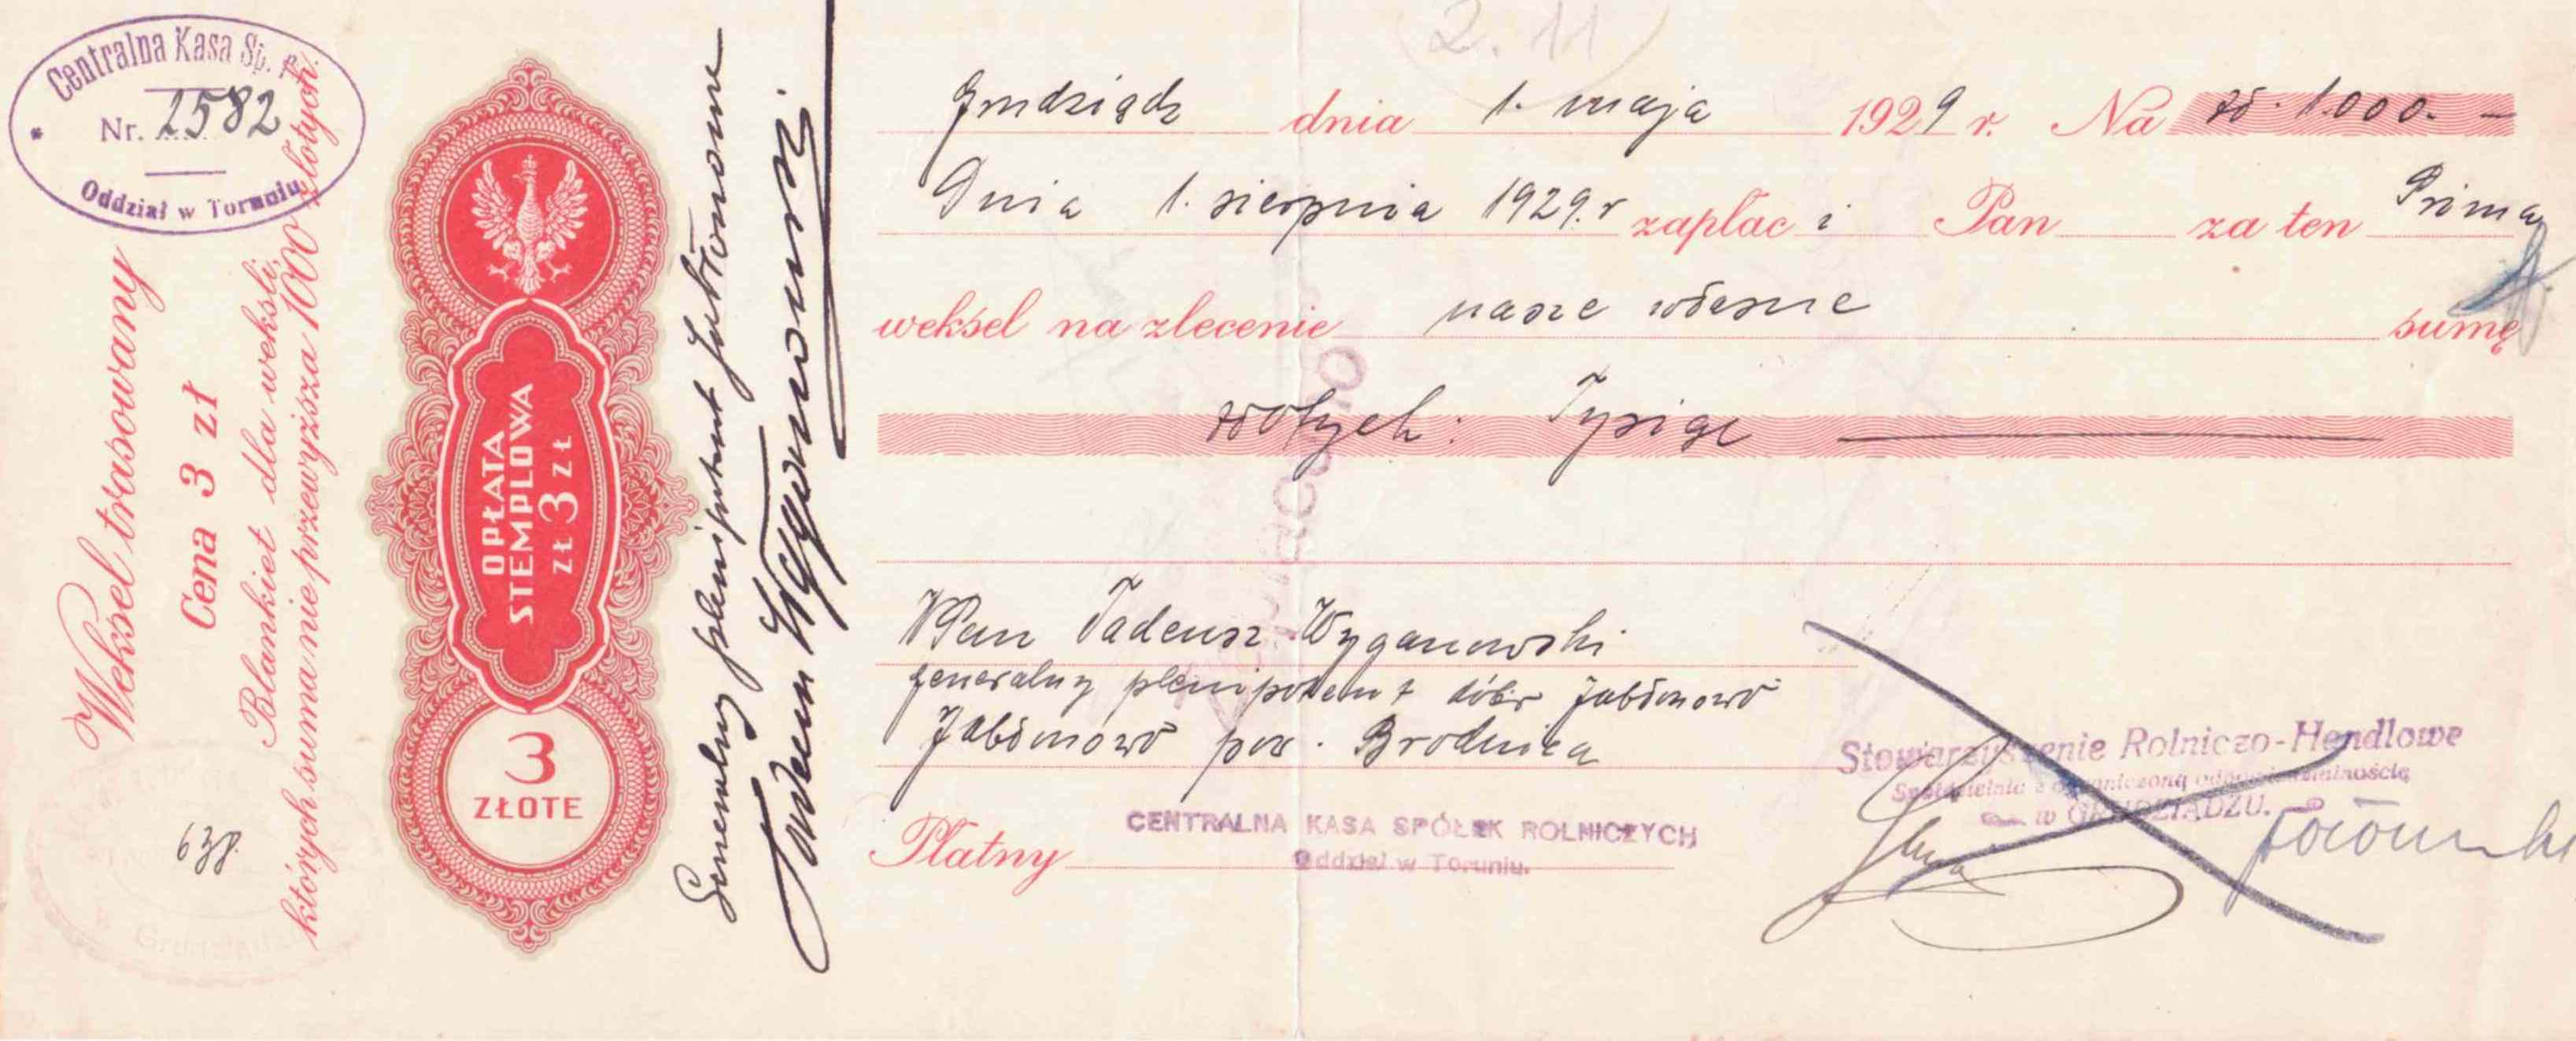 Centralna Kasa Sp. R.
Nr. 2582
Oddział w Toruniu
Weksel trasowany
Cena 3 zł
Blankiet dla weksli,
których suma nie przewyższa 1000 złotych.
638.
OPŁATA
STEMPLOWA
ZŁ 3 ZŁ
3
ZŁOTE
Generalny plenipotent Jabłonowa
Tadeusz Wyganowski
(2.11)
Grudziądz dnia 1. maja 1929 r. Na zł. 1.000.-
Dnia 1. sierpnia 1929.r zapłaci Pan za ten Prima
weksel na zlecenie nasze własne sumę
złotych: Tysiąc
WPan Tadeusz Wyganowski
generalny plenipotent dóbr Jabłonowo
Jabłonowo pow. Brodnica
Płatny CENTRALNA KASA SPÓŁEK ROLNICZYCH
Oddział w Toruniu.
Stowarzyszenie Rolniczo-Handlowe
Spółdzielnia z ograniczoną odpowiedzialnością
w GRUDZIĄDZU.